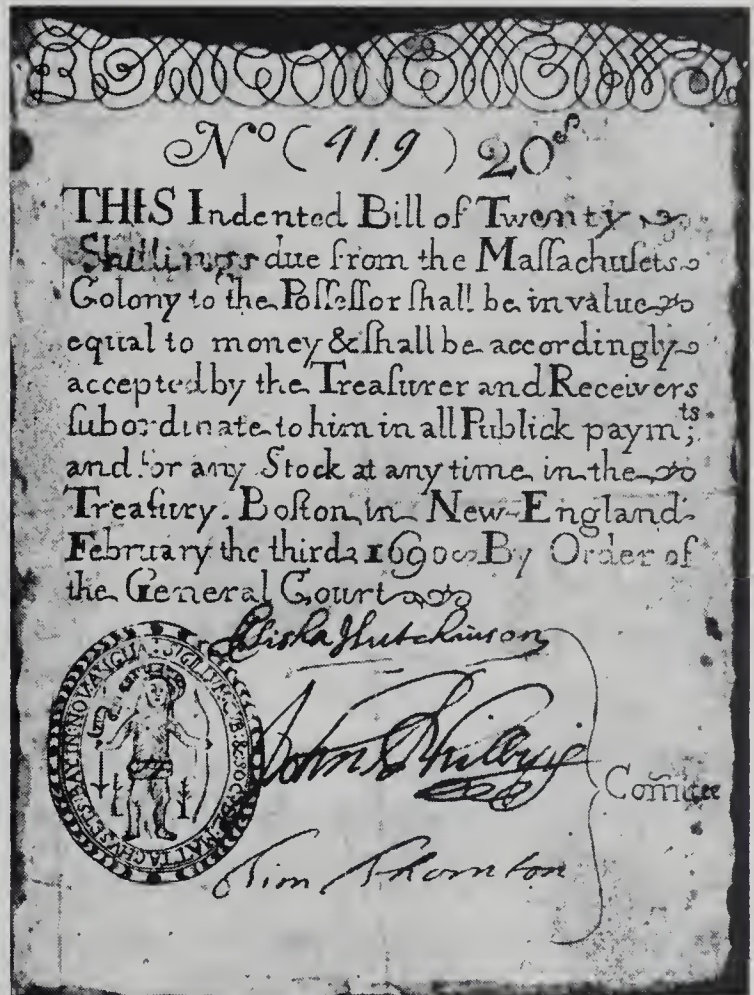 No (919) 20s
THIS Indented Bill of Twenty
Shillings due from the Maſſachuſets
Colony to the Poſſeſſor ſhall be in value
equal to money & ſhall be accordingly
accepted by the Treaſurer and Receivers
ſubordinate to him in all Publick paymts;
and for any Stock at any time in the
Treaſury. Boſton in New-England
February the third 1690. By Order of
the General Court
Elisha Hutchinson
John Phillips
Tim Thornton
Comitee
SIGILLUM GUB & SOC DE MATTACHVSETS BAY IN NOV ANGLIA